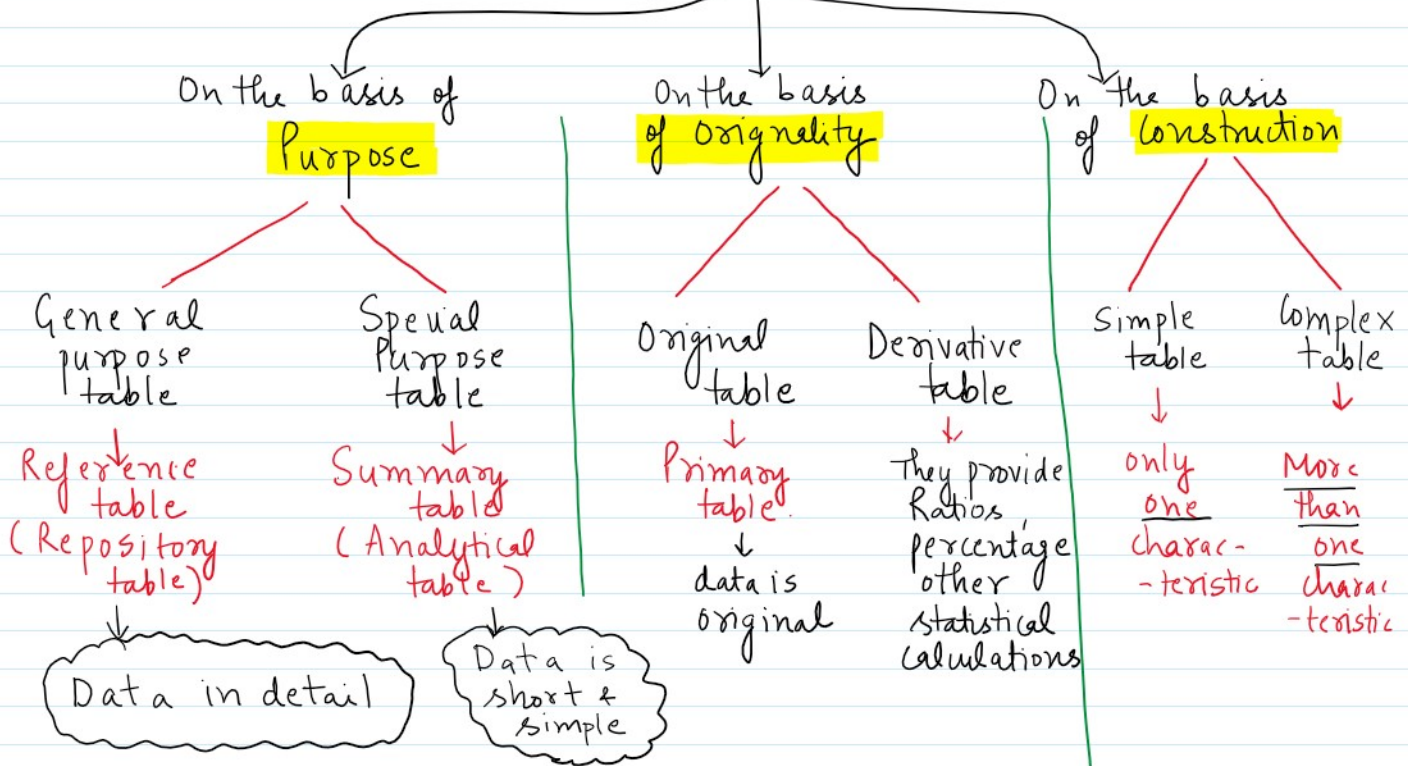 On the basis of
Purpose
General
purpose
table
Reference
table
(Repository
table)
Data in detail
Special
Purpose
table
Summary
table
(Analytical
table)
Data is
short &
simple
On the basis
of Orignality
Original
table
Primary
table.
data is
original
Derivative
table
They provide
Ratios,
percentage
other
statistical
calculations
On the basis
of Construction
Simple
table
only
one
charac-
-teristic
Complex
table
More
than
one
charac
-teristic